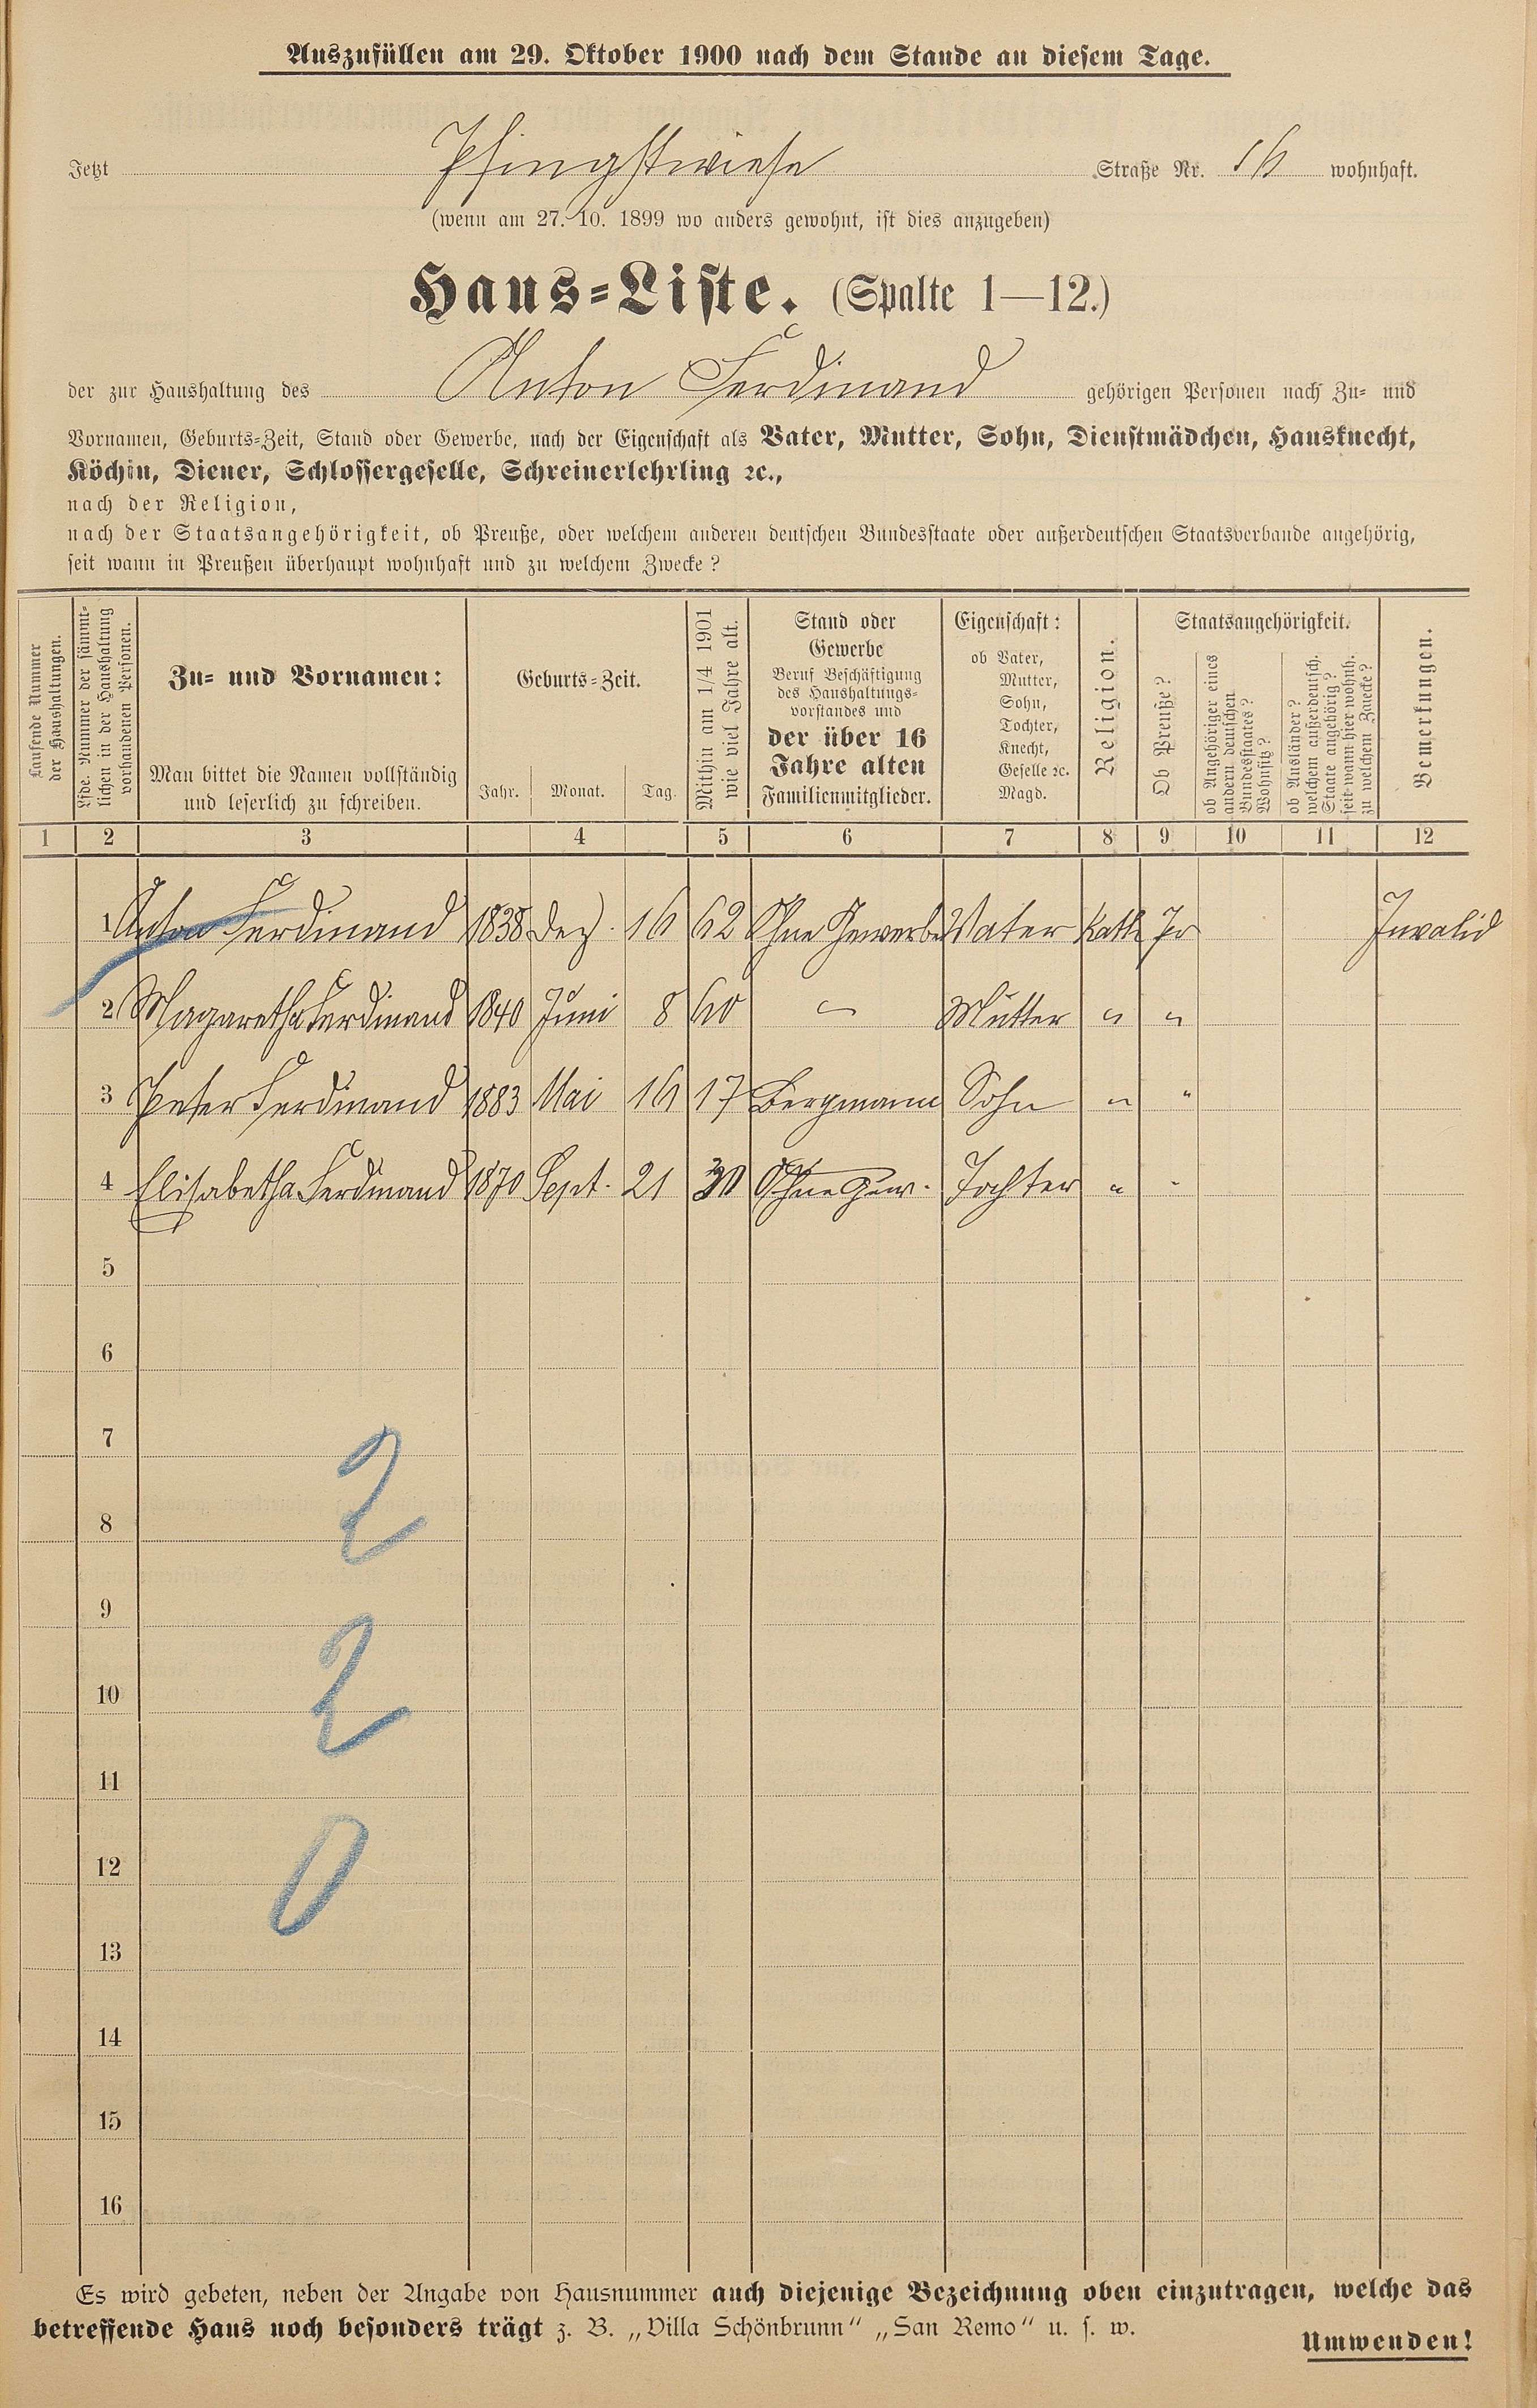 Auszufüllen am 29. Oktober 1900 nach dem Stande an diesem Tage.
Jetzt Pfingstwiese Straße Nr. 16 wohnhaft.
(wenn am 27. 10. 1899 wo anders gewohnt, ist dies anzugeben)
Haus-Liste. (Spalte 1—12.)
der zur Haushaltung des Anton Ferdinand gehörigen Personen nach Zu- und
Vornamen, Geburts-Zeit, Stand oder Gewerbe, nach der Eigenschaft als Vater, Mutter, Sohn, Dienstmädchen, Hausknecht,
Köchin, Diener, Schlossergeselle, Schreinerlehrling ꝛc.,
nach der Religion,
nach der Staatsangehörigkeit, ob Preuße, oder welchem anderen deutschen Bundesstaate oder außerdeutschen Staatsverbande angehörig,
seit wann in Preußen überhaupt wohnhaft und zu welchem Zwecke?
Laufende Nummer
der Haushaltungen.
Lfde. Nummer der sämmt-
lichen in der Haushaltung
vorhandenen Personen.
Zu- und Vornamen:
Man bittet die Namen vollständig
und leserlich zu schreiben.
Geburts-Zeit.
Jahr. Monat. Tag.
Mithin am 1/4 1901
wie viel Jahre alt.
Stand oder
Gewerbe
Beruf Beschäftigung
des Haushaltungs-
vorstandes und
der über 16
Jahre alten
Familienmitglieder.
Eigenschaft:
ob Vater,
Mutter,
Sohn,
Tochter,
Knecht,
Geselle ꝛc.
Magd.
Religion.
Staatsangehörigkeit.
Ob Preuße?
ob Angehöriger eines
andern deutschen
Bundesstaates?
Wohnsitz?
ob Ausländer?
welchem außerdeutsch.
Staate angehörig?
seit wann hier wohnh.
zu welchem Zwecke?
Bemerkungen.
1 2 3 4 5 6 7 8 9 10 11 12
1 Anton Ferdinand 1838 Dez. 16 62 Ohne Gewerbe Vater Kath Pr Invalid
2 Magaretha Ferdinand 1840 Juni 8 60 " Mutter " "
3 Peter Ferdinand 1883 Mai 16 17 Bergmann Sohn " "
4 Elisabetha Ferdinand 1870 Sept. 21 30 Ohne Gew. Tochter " "
5
6
7
2
8
9
2
10
11
0
12
13
14
15
16
Es wird gebeten, neben der Angabe von Hausnummer auch diejenige Bezeichnung oben einzutragen, welche das
betreffende Haus noch besonders trägt z. B. „Villa Schönbrunn“ „San Remo“ u. s. w.
Umwenden!